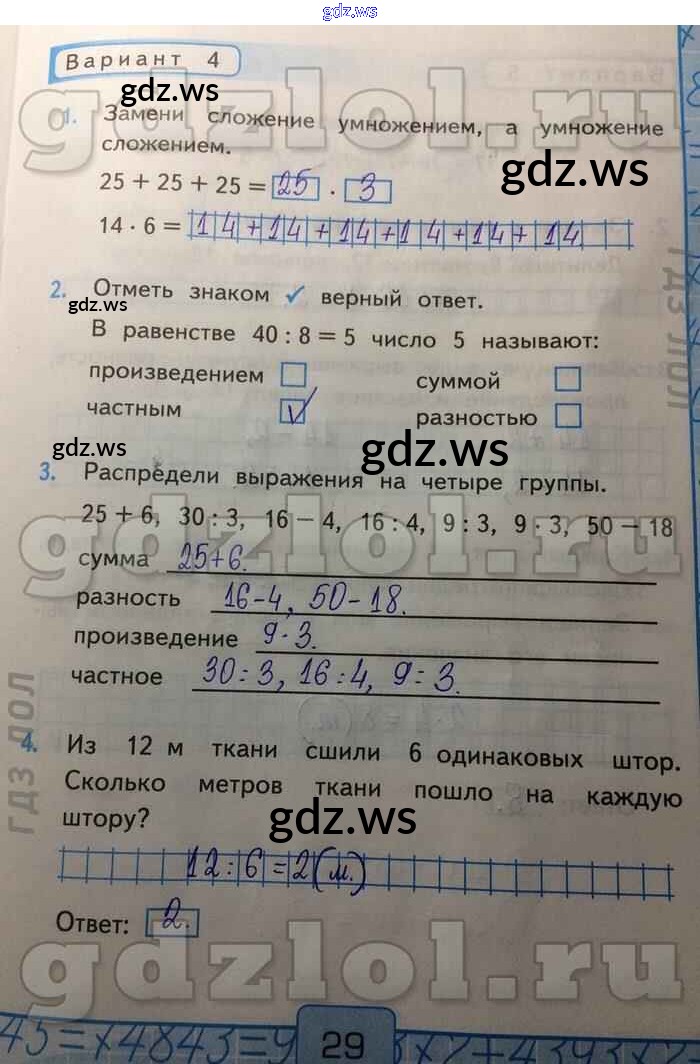 gdz.ws
Вариант 4
gdz.ws
gdzlol.ru
1. Замени сложение умножением, а умножение
сложением.
gdz.ws
25 + 25 + 25 = 25 · 3
14 · 6 = 14+14+14+14+14+14
2. Отметь знаком ✓ верный ответ.
gdz.ws
В равенстве 40 : 8 = 5 число 5 называют:
произведением
суммой
частным ✓
разностью
gdz.ws
gdz.ws
3. Распредели выражения на четыре группы.
25 + 6, 30 : 3, 16 − 4, 16 : 4, 9 : 3, 9 · 3, 50 − 18
gdzlol.ru
сумма 25+6.
разность 16-4, 50-18.
произведение 9·3.
частное 30:3, 16:4, 9:3.
ГДЗ ЛОЛ
ГДЗ ЛОЛ
4. Из 12 м ткани сшили 6 одинаковых штор.
Сколько метров ткани пошло на каждую
штору?
gdz.ws
12:6=2(м.)
Ответ: 2.
gdzlol.ru
29